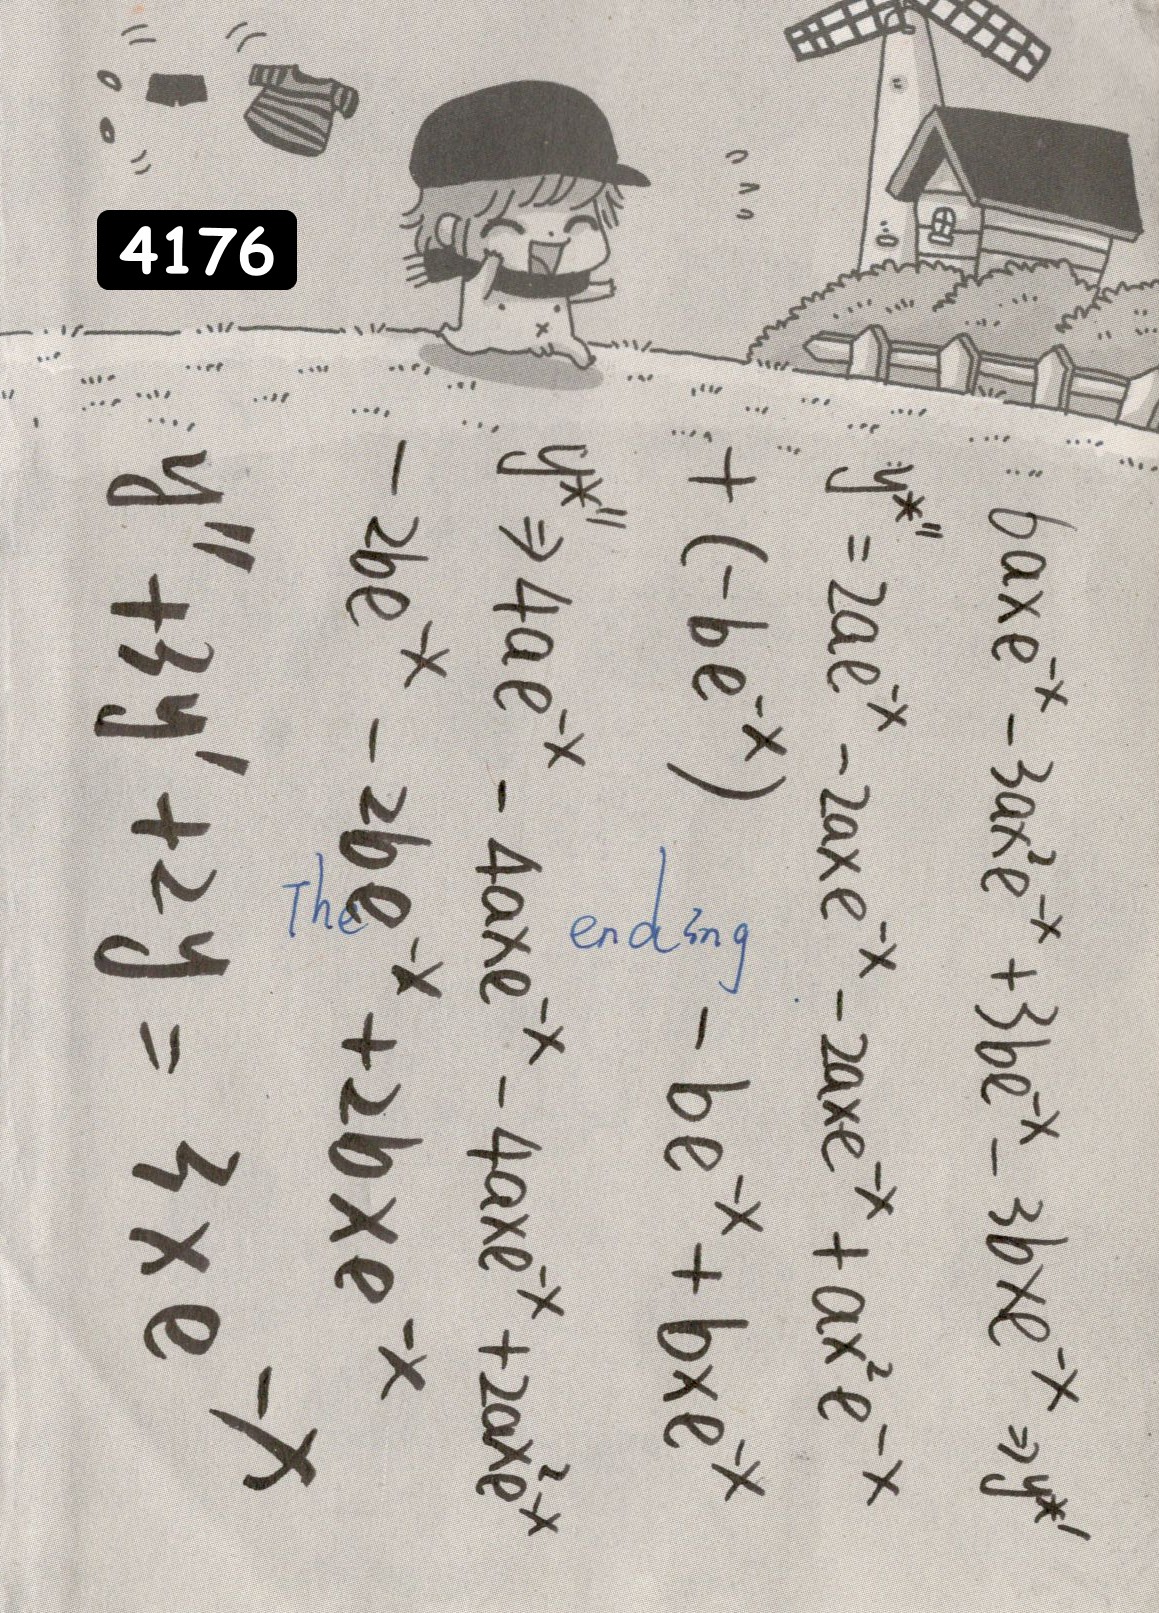 4176
6axe⁻ˣ - 3ax²e⁻ˣ + 3be⁻ˣ - 3bxe⁻ˣ ⇒ y*'
y*" = 2ae⁻ˣ - 2axe⁻ˣ - 2axe⁻ˣ + ax²e⁻ˣ
+ (-be⁻ˣ) - be⁻ˣ + bxe⁻ˣ
y*" ⇒ 4ae⁻ˣ - 4axe⁻ˣ - 4axe⁻ˣ + 2ax²e⁻ˣ
- 2be⁻ˣ - 2be⁻ˣ + 2bxe⁻ˣ
y'' + 3y' + 2y = 3xe⁻ˣ
The ending